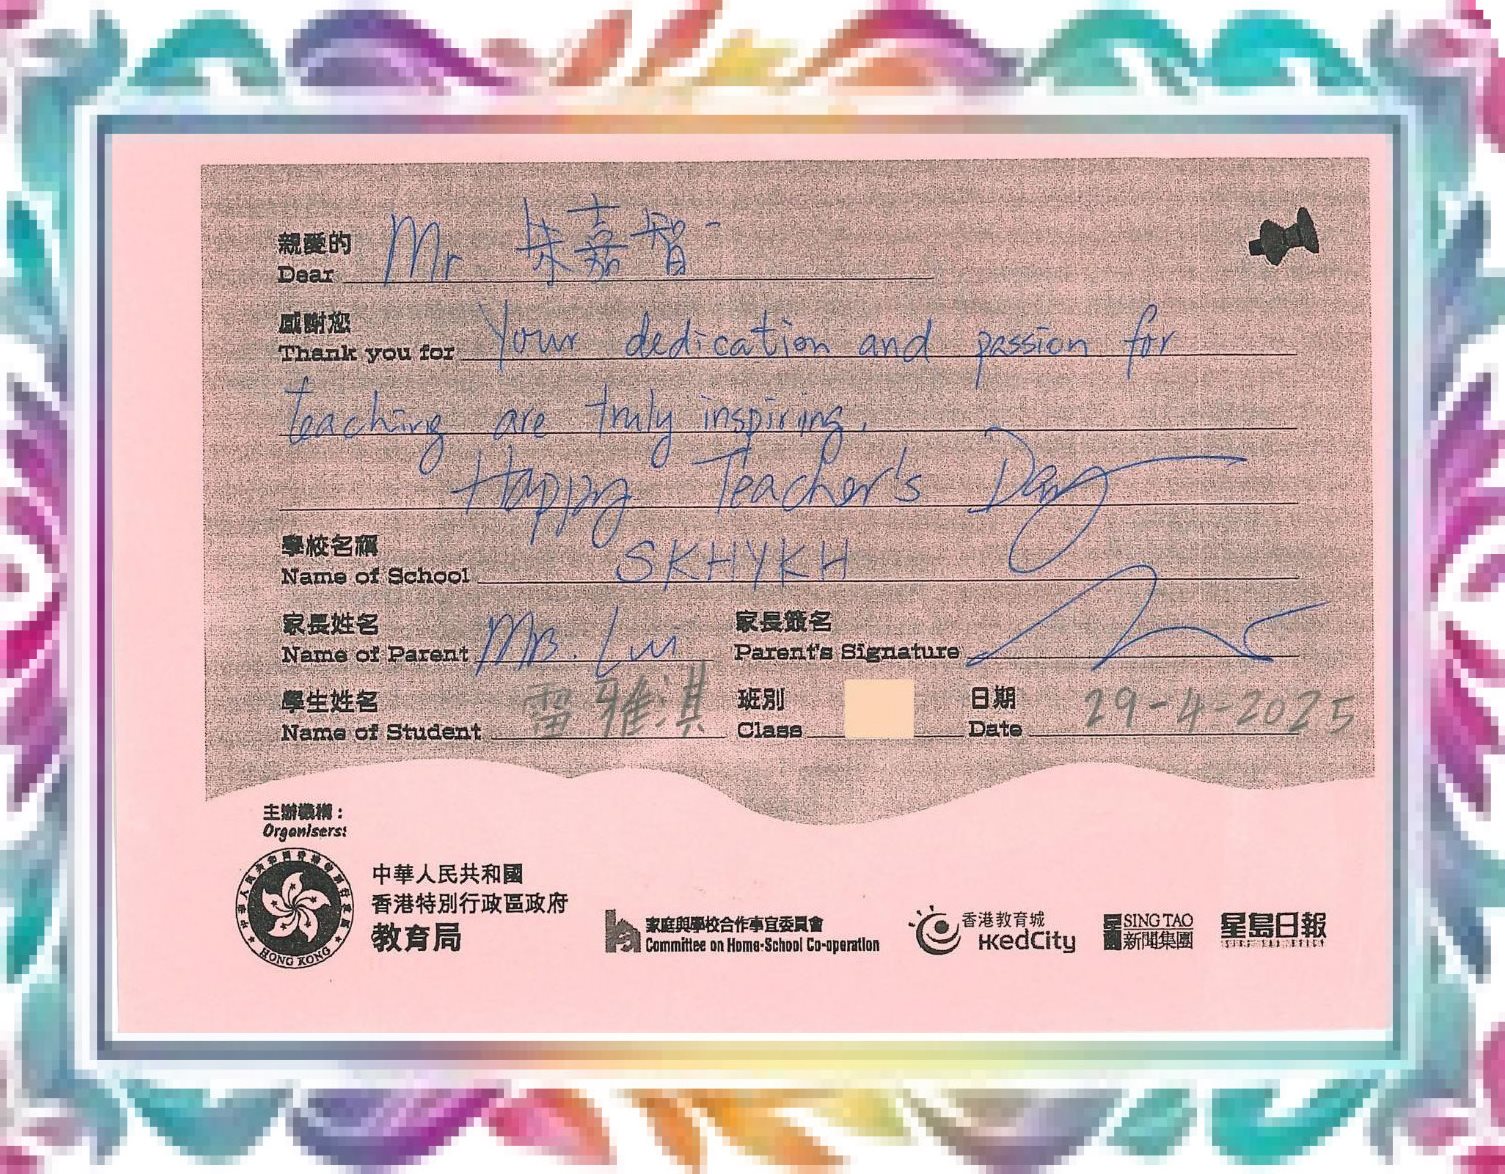 親愛的
Dear Mr 朱嘉智
感謝您
Thank you for Your dedication and passion for
teaching are truly inspiring.
Happy Teacher's Day
學校名稱
Name of School SKHYKH
家長姓名 家長簽名
Name of Parent Mrs. Lui Parent's Signature
學生姓名 雷雅淇 班別 日期 29-4-2025
Name of Student Class Date
主辦機構：
Organisers:
中華人民共和國
香港特別行政區政府
教育局
HONG KONG
家庭與學校合作事宜委員會
Committee on Home-School Co-operation
香港教育城
HKedCity
SING TAO
新聞集團
星島日報